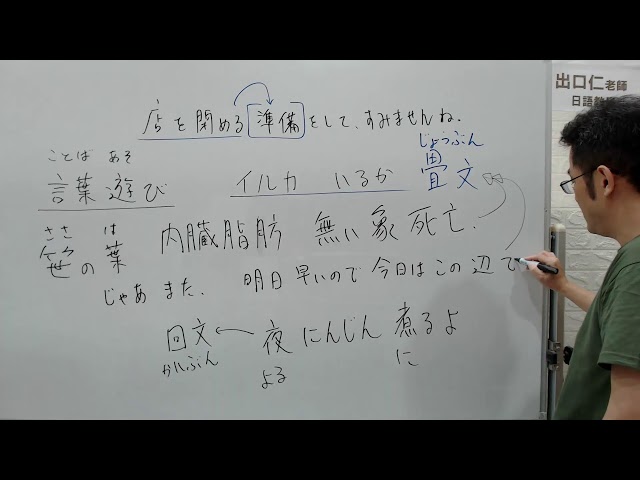 店を閉める準備をして、すみませんね.
ことば あそ
言葉遊び
イルカ いるか
じょうぶん
畳文
ささ は
笹の葉
内臓脂肪 無い象死亡.
じゃあまた. 明日早いので今日はこの辺で
回文←夜にんじん煮るよ
かいぶん
よる
に
出口仁老師